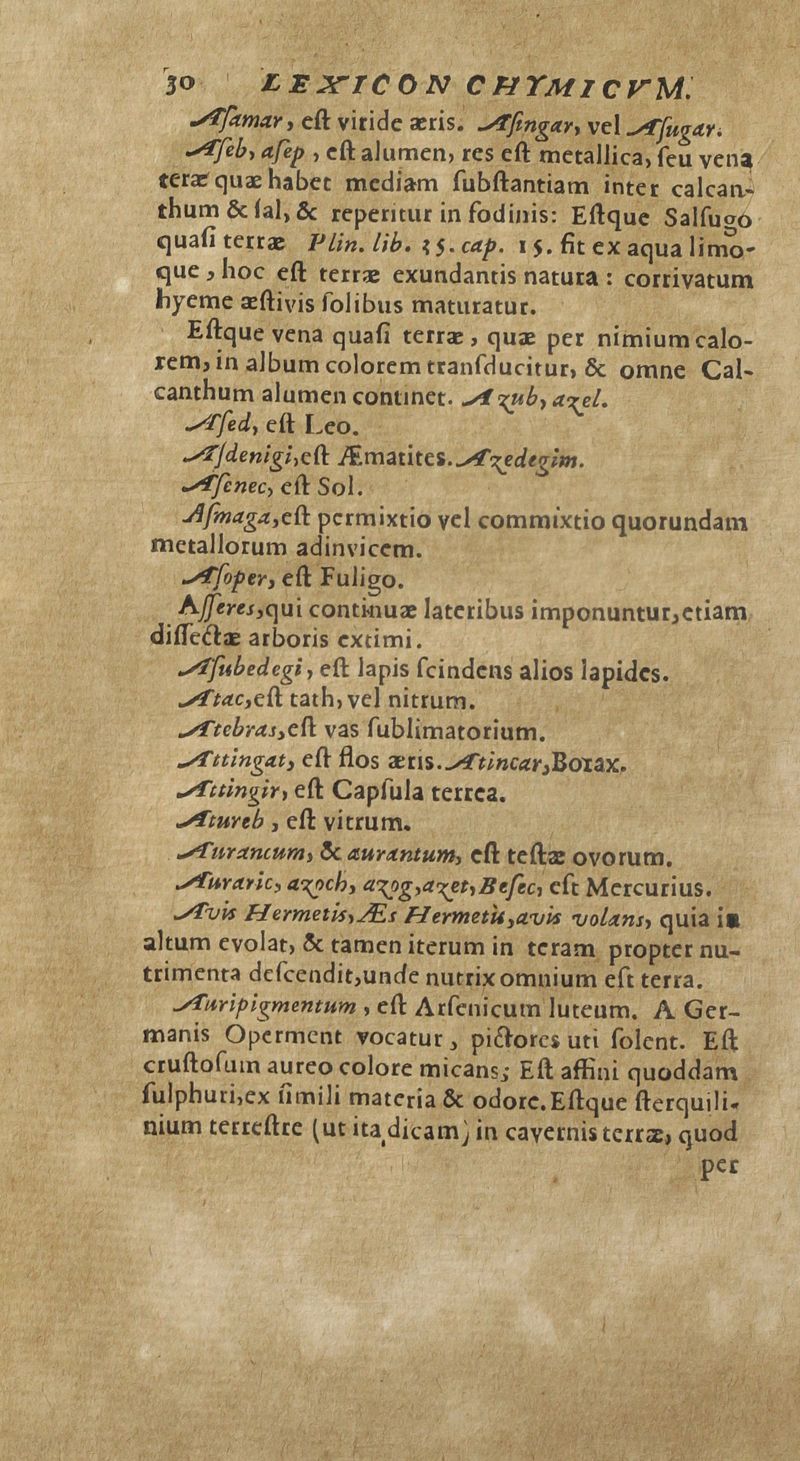 30 LEXICON CHYMICVM.
Aſamar, eſt viride æris. Aſingar, vel Aſugar.
Aſeb, aſep , eſt alumen, res eſt metallica, ſeu vena
terræ quæ habet mediam ſubſtantiam inter calcan-
thum & ſal, & reperitur in fodinis: Eſtque Salſugo
quaſi terræ Plin. lib. 35. cap. 15. fit ex aqua limo-
que , hoc eſt terræ exundantis natura : corrivatum
hyeme æſtivis ſolibus maturatur.
Eſtque vena quaſi terræ , quæ per nimium calo-
rem, in album colorem tranſducitur, & omne Cal-
canthum alumen continet. Azub, azel.
Aſed, eſt Leo.
Aſdenigi,eſt Æmatites. Azedegim.
Aſenec, eſt Sol.
Aſmaga,eſt permixtio vel commixtio quorundam
metallorum adinvicem.
Aſoper, eſt Fuligo.
Aſſeres,qui continuæ lateribus imponuntur,etiam
diſſectæ arboris extimi.
Aſubedegi , eſt lapis ſcindens alios lapides.
Atac,eſt tath, vel nitrum.
Atebras,eſt vas ſublimatorium.
Attingat, eſt flos æris. Atincar,Borax.
Attingir, eſt Capſula terrea.
Atureb , eſt vitrum.
Aurancum, & aurantum, eſt teſtæ ovorum.
Auraric, azoch, azog,azet,Beſec, eſt Mercurius.
Avis Hermetis, Æs Hermetis,avis volans, quia in
altum evolat, & tamen iterum in teram propter nu-
trimenta deſcendit,unde nutrix omnium eſt terra.
Auripigmentum , eſt Arſenicum luteum. A Ger-
manis Operment vocatur , pictores uti ſolent. Eſt
cruſtoſum aureo colore micans; Eſt affini quoddam
ſulphuri,ex ſimili materia & odore. Eſtque ſterquili-
nium terreſtre (ut ita dicam) in cavernis terræ, quod
per